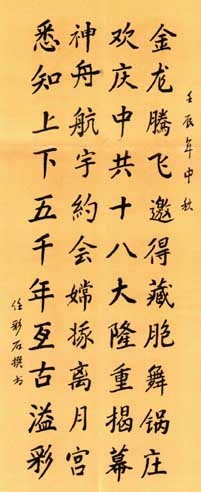 壬辰年中秋
金龙腾飞邀得藏胞舞锅庄
欢庆中共十八大隆重揭幕
神舟航宇約会嫦㧻离月宫
悉知上下五千年亙古溢彩
任彩石撰书